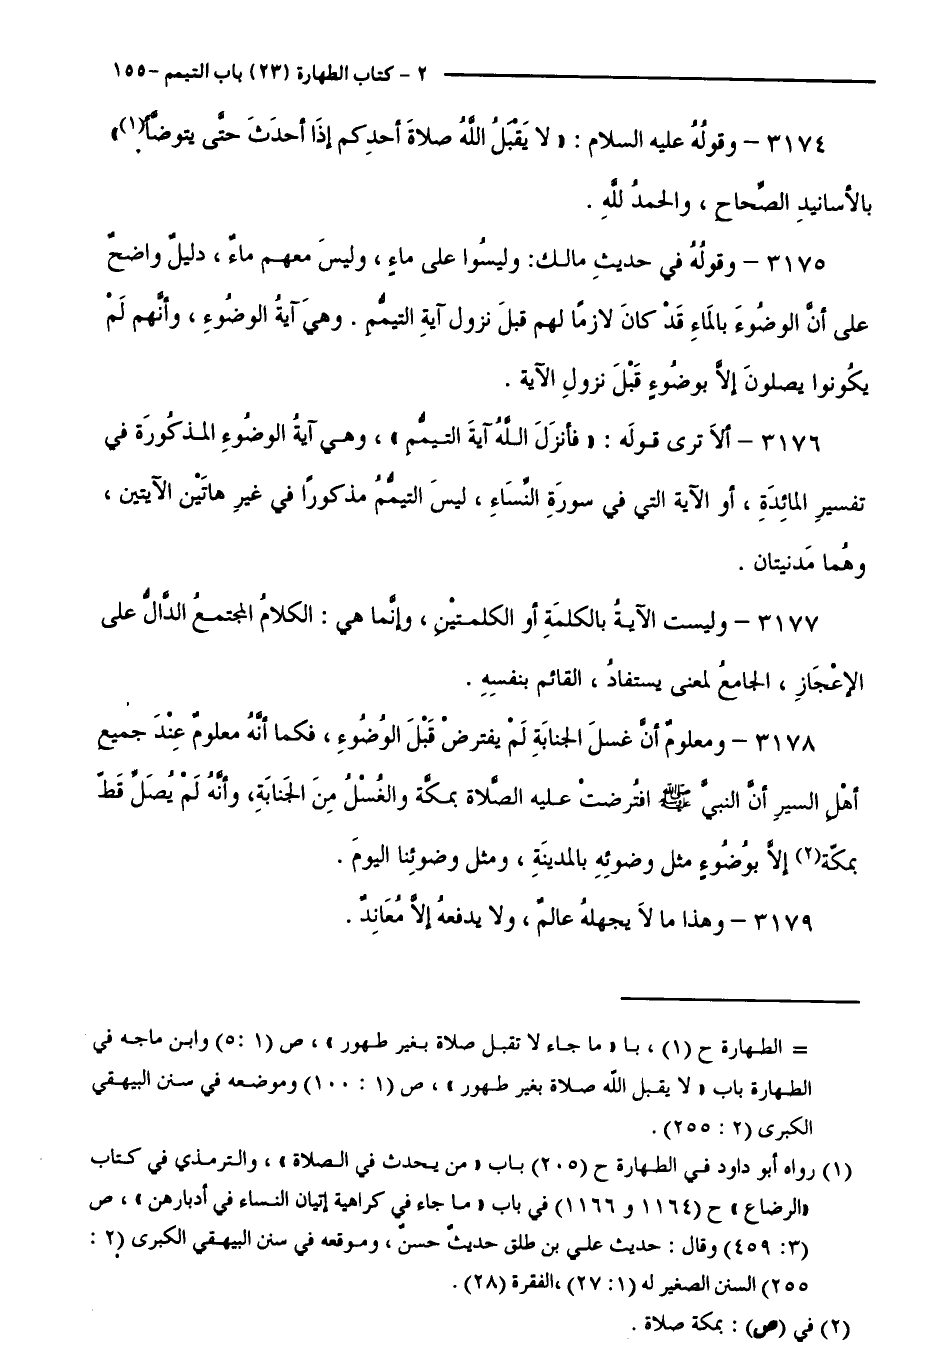 ٢ - كتاب الطهارة (٢٣) باب التيمم -١٥٥
٣١٧٤ - وقولُهُ عليه السلام : « لا يَقْبَلُ اللَّهُ صلاةَ أحدِكم إذَا أحدَثَ حتَّى يتوضَّأَ(١)»
بالأسانيدِ الصِّحاحِ ، والحمدُ للَّهِ .
٣١٧٥ - وقولُهُ في حديثِ مالك: وليسُوا على ماءٍ ، وليسَ معهم ماءٌ ، دليلٌ واضحٌ
على أنَّ الوضُوءَ بالمَاءِ قَدْ كانَ لازمًا لهم قبلَ نزول آيةِ التيمُّمِ . وهيَ آيةُ الوضُوءِ ، وأنَّهم لَمْ
يكُونوا يصلونَ إلاَّ بوضُوءٍ قَبْلَ نزولِ الآية .
٣١٧٦ - ألاَ ترى قولَه : « فأنزَلَ اللَّهُ آيةَ التيمُّمِ » ، وهي آيةُ الوضُوءِ المذكُورَة في
تفسيرِ المائِدَةِ ، أو الآية التي في سورَةِ النِّسَاءِ ، ليسَ التيمُّمُ مذكورًا في غيرِ هاتَيْن الآيتين ،
وهُما مَدنيتان .
٣١٧٧ - وليست الآيةُ بالكلمَةِ أو الكلمتيْنِ ، وإنَّما هي : الكلامُ المجتمعُ الدَّالُّ على
الإعْجَازِ ، الجامعُ لمعنى يستفادُ ، القائم بنفسِهِ .
٣١٧٨ - ومعلومٌ أنَّ غسلَ الجنابَةِ لَمْ يفترضْ قَبْلَ الوُضُوءِ ، فكما أنَّهُ معلومٌ عِنْدَ جميعِ
أهْلِ السيرِ أنَّ النبيَّ ﷺ افتُرضتْ عليه الصَّلاة بمكَّة والغُسْلُ مِنَ الجَنابَةِ، وأنَّهُ لَمْ يُصَلِّ قَطّ
بمكّة(٢) إلاَّ بوُضُوءٍ مثل وضوئِهِ بالمدينَةِ ، ومثل وضوئِنا اليومَ .
٣١٧٩ - وهذا ما لاَ يجهلهُ عالمٌ ، ولا يدفعهُ إلاَّ مُعَاندٌ .
= الطهارة ح (١) ، با « ما جاء لا تقبل صلاة بغير طهور » ، ص (١ :٥) وابن ماجه في
الطهارة باب « لا يقبل اللّه صلاة بغير طهور » ، ص (١ : ١٠٠) وموضعه في سنن البيهقي
الكبرى (٢ : ٢٥٥) .
(١) رواه أبو داود في الطهارة ح (٢٠٥) باب « من يحدث في الصلاة » ، والترمذي في كتاب
«الرضاع » ح (١١٦٤ و ١١٦٦) في باب « ما جاء في كراهية إتيان النساء في أدبارهن » ، ص
(٣: ٤٥٩) وقال : حديث علي بن طلق حديثٌ حسنٌ ، وموقعه في سنن البيهقي الكبرى (٢ :
٢٥٥) السنن الصغير له (١: ٢٧) ،الفقرة (٢٨) .
(٢) في (ص) : بمكة صلاة .